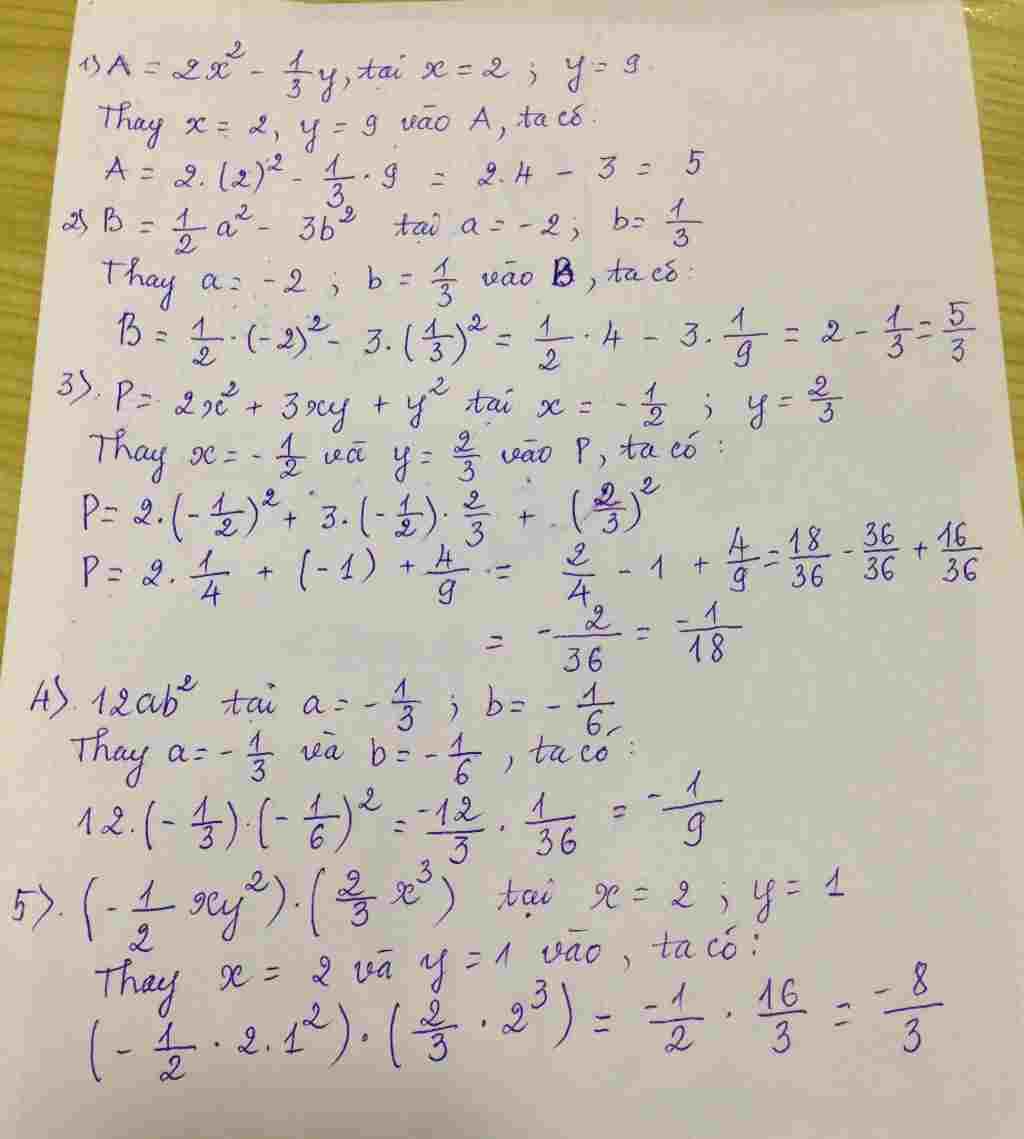 1) A = 2x² - 1/3 y, tại x = 2 ; y = 9.
Thay x = 2, y = 9 vào A, ta có:
A = 2.(2)² - 1/3 . 9 = 2.4 - 3 = 5
2) B = 1/2 a² - 3b² tại a = -2 ; b = 1/3
Thay a = -2 ; b = 1/3 vào B, ta có:
B = 1/2 . (-2)² - 3.(1/3)² = 1/2 . 4 - 3. 1/9 = 2 - 1/3 = 5/3
3). P = 2x² + 3xy + y² tại x = - 1/2 ; y = 2/3
Thay x = - 1/2 và y = 2/3 vào P, ta có :
P = 2.(- 1/2)² + 3.(- 1/2). 2/3 + (2/3)²
P = 2. 1/4 + (-1) + 4/9 = 2/4 - 1 + 4/9 = 18/36 - 36/36 + 16/36
= - 2/36 = -1/18
4). 12ab² tại a = - 1/3 ; b = - 1/6
Thay a = - 1/3 và b = - 1/6 , ta có :
12.(- 1/3).(- 1/6)² = -12/3 . 1/36 = - 1/9
5). (- 1/2 xy²).(2/3 x³) tại x = 2 ; y = 1
Thay x = 2 và y = 1 vào , ta có :
(- 1/2 . 2.1²).(2/3 . 2³) = -1/2 . 16/3 = -8/3